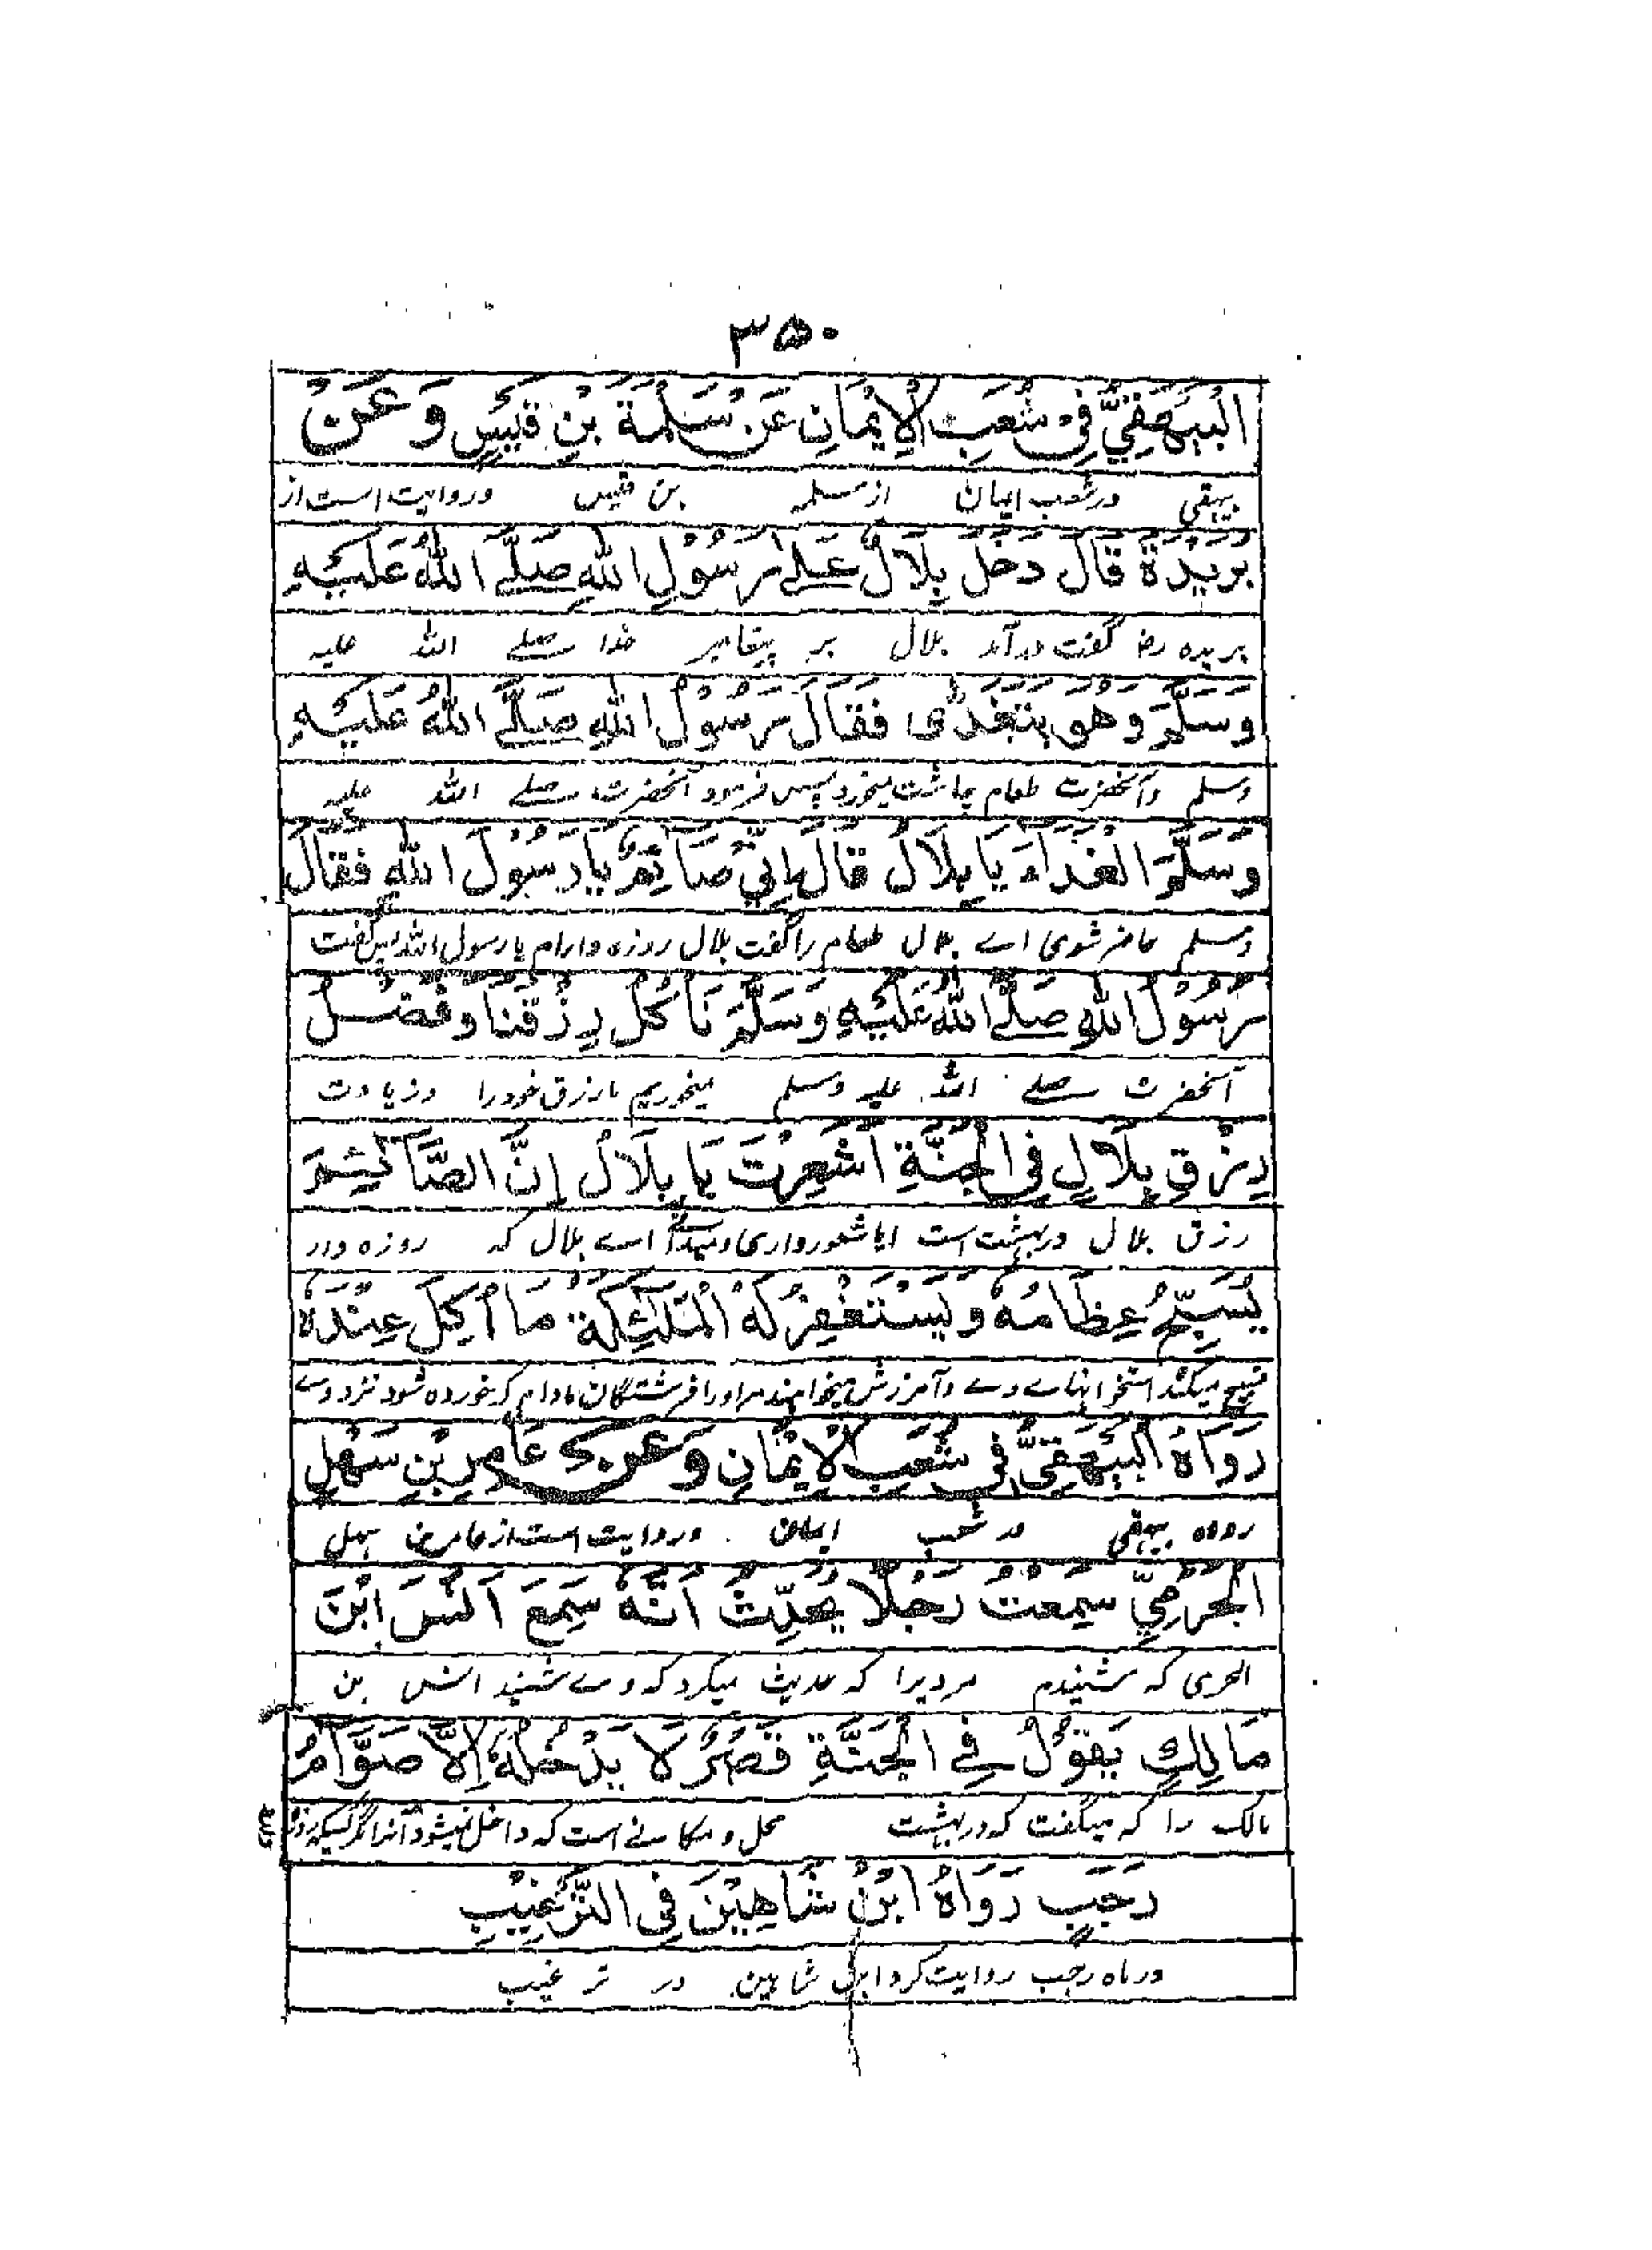 ۳۵۰
الْبَيْهَقِيُّ فِيْ شُعَبِ الْاِيْمَانِ عَنْ سَلَمَةَ بْنِ قَيْسٍ وَعَنْ
بیہقی در شعب ایمان از سلمہ بن قیس و روایت است از
بُرَيْدَةَ قَالَ دَخَلَ بِلَالٌ عَلٰے رَسُوْلِ اللّٰهِ صَلَّے اللّٰهُ عَلَيْهِ
بریدہ رضہ گفت در آمد بلال بر پیغامبر خدا صلے اللہ علیہ
وَسَلَّمَ وَهُوَ يَتَغَدّٰى فَقَالَ رَسُوْلُ اللّٰهِ صَلَّے اللّٰهُ عَلَيْهِ
وسلم و آنحضرت طعام چاشت میخورد پس فرمود آنحضرت صلے اللہ علیہ
وَسَلَّمَ الْغَدَاءَ يَا بِلَالُ قَالَ اِنِّيْ صَائِمٌ يَا رَسُوْلَ اللّٰهِ فَقَالَ
وسلم حاضر شوی اے بلال طعام را گفت بلال روزہ دارام یا رسول اللہ پس گفت
رَسُوْلُ اللّٰهِ صَلَّے اللّٰهُ عَلَيْهِ وَسَلَّمَ نَاْكُلُ رِزْقَنَا وَفَضْلُ
آنحضرت صلے اللہ علیہ وسلم میخوریم ما رزق خود را و زیادت
رِزْقِ بِلَالٍ فِي الْجَنَّةِ اَشَعِرْتَ يَا بِلَالُ اِنَّ الصَّائِمَ
رزق بلال در بہشت است ایا شعور داری اے بلال کہ روزہ دار
يُسَبِّحُ عِظَامُهٗ وَيَسْتَغْفِرُ لَهُ الْمَلٰٓئِكَةُ مَا اُكِلَ عِنْدَهٗ
تسبیح میکند استخوانہاے وے و آمرزش میخواہند مر او را فرشتگان مادام کہ خوردہ شود نزد وے
رَوَاهُ الْبَيْهَقِيُّ فِيْ شُعَبِ الْاِيْمَانِ وَعَنْ عَامِرِ بْنِ سَهْلٍ
رواہ بیہقی در شعب ایمان و روایت است از عامر بن سہل
الْجَرْمِيِّ سَمِعْتُ رَجُلًا يُحَدِّثُ اَنَّهٗ سَمِعَ اَنَسَ ابْنَ
الحرمی کہ شنیدم مردیرا کہ حدیث میکرد کہ وے شنید انس بن
مَالِكٍ يَقُوْلُ فِے الْجَنَّةِ قَصْرٌ لَا يَدْخُلُهٗ اِلَّا صَوَّامُ
مالک را کہ میگفت کہ در بہشت محل و مکانے است کہ داخل نمیشود آنرا مگر کسیکہ روزہ
رَجَبٍ رَوَاهُ ابْنُ شَاهِيْنَ فِي التَّرْغِيْبِ
در ماہ رجب روایت کرد ابن شاہین در ترغیب